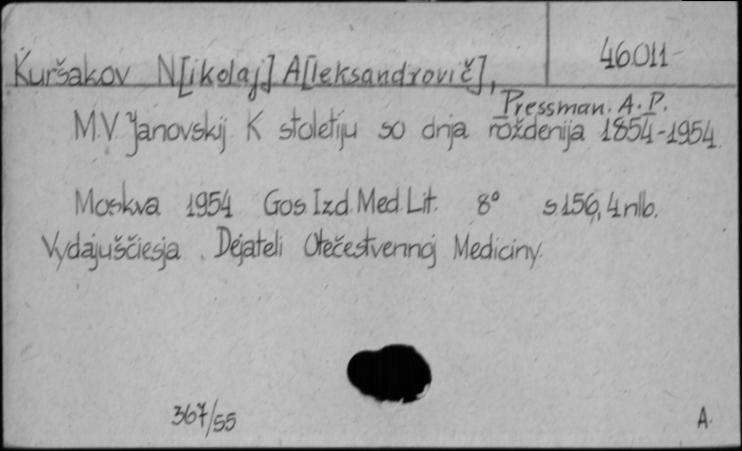 46011
Kuršakov N[ikolaj] A[leksandrovič],
Pressman. A. P.
M.V. Janovskij K stoletiju so dnja roždenija 1854-1954.
Moskva 1954 Gos. Izd. Med. Lit. 8° s 156, 4 nlb.
Vydajuščiesja Dejateli Otečestvennoj Mediciny.
367/55
A.